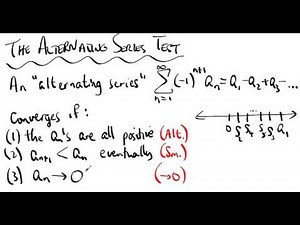 THE ALTERNATING SERIES TEST
An "alternating series" ∞ Σ n=1 (-1)^{n+1} a_n = a_1 - a_2 + a_3 - ...
Converges if:
(1) the a_n's are all positive (Alt.)
(2) a_{n+1} < a_n eventually (Sm.)
(3) a_n → 0 (→0)
0